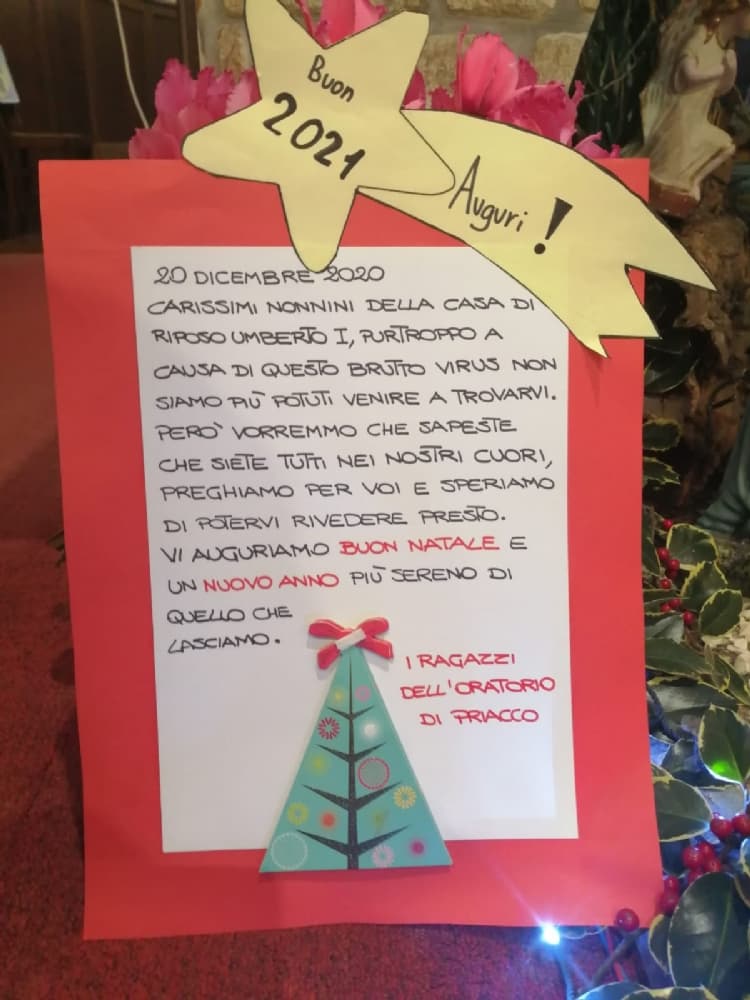 Buon
2021
Auguri !
20 DICEMBRE 2020
CARISSIMI NONNINI DELLA CASA DI
RIPOSO UMBERTO I, PURTROPPO A
CAUSA DI QUESTO BRUTTO VIRUS NON
SIAMO PIÙ POTUTI VENIRE A TROVARVI.
PERÒ VORREMMO CHE SAPESTE
CHE SIETE TUTTI NEI NOSTRI CUORI,
PREGHIAMO PER VOI E SPERIAMO
DI POTERVI RIVEDERE PRESTO.
VI AUGURIAMO BUON NATALE E
UN NUOVO ANNO PIÙ SERENO DI
QUELLO CHE
LASCIAMO.
I RAGAZZI
DELL'ORATORIO
DI PRIACCO